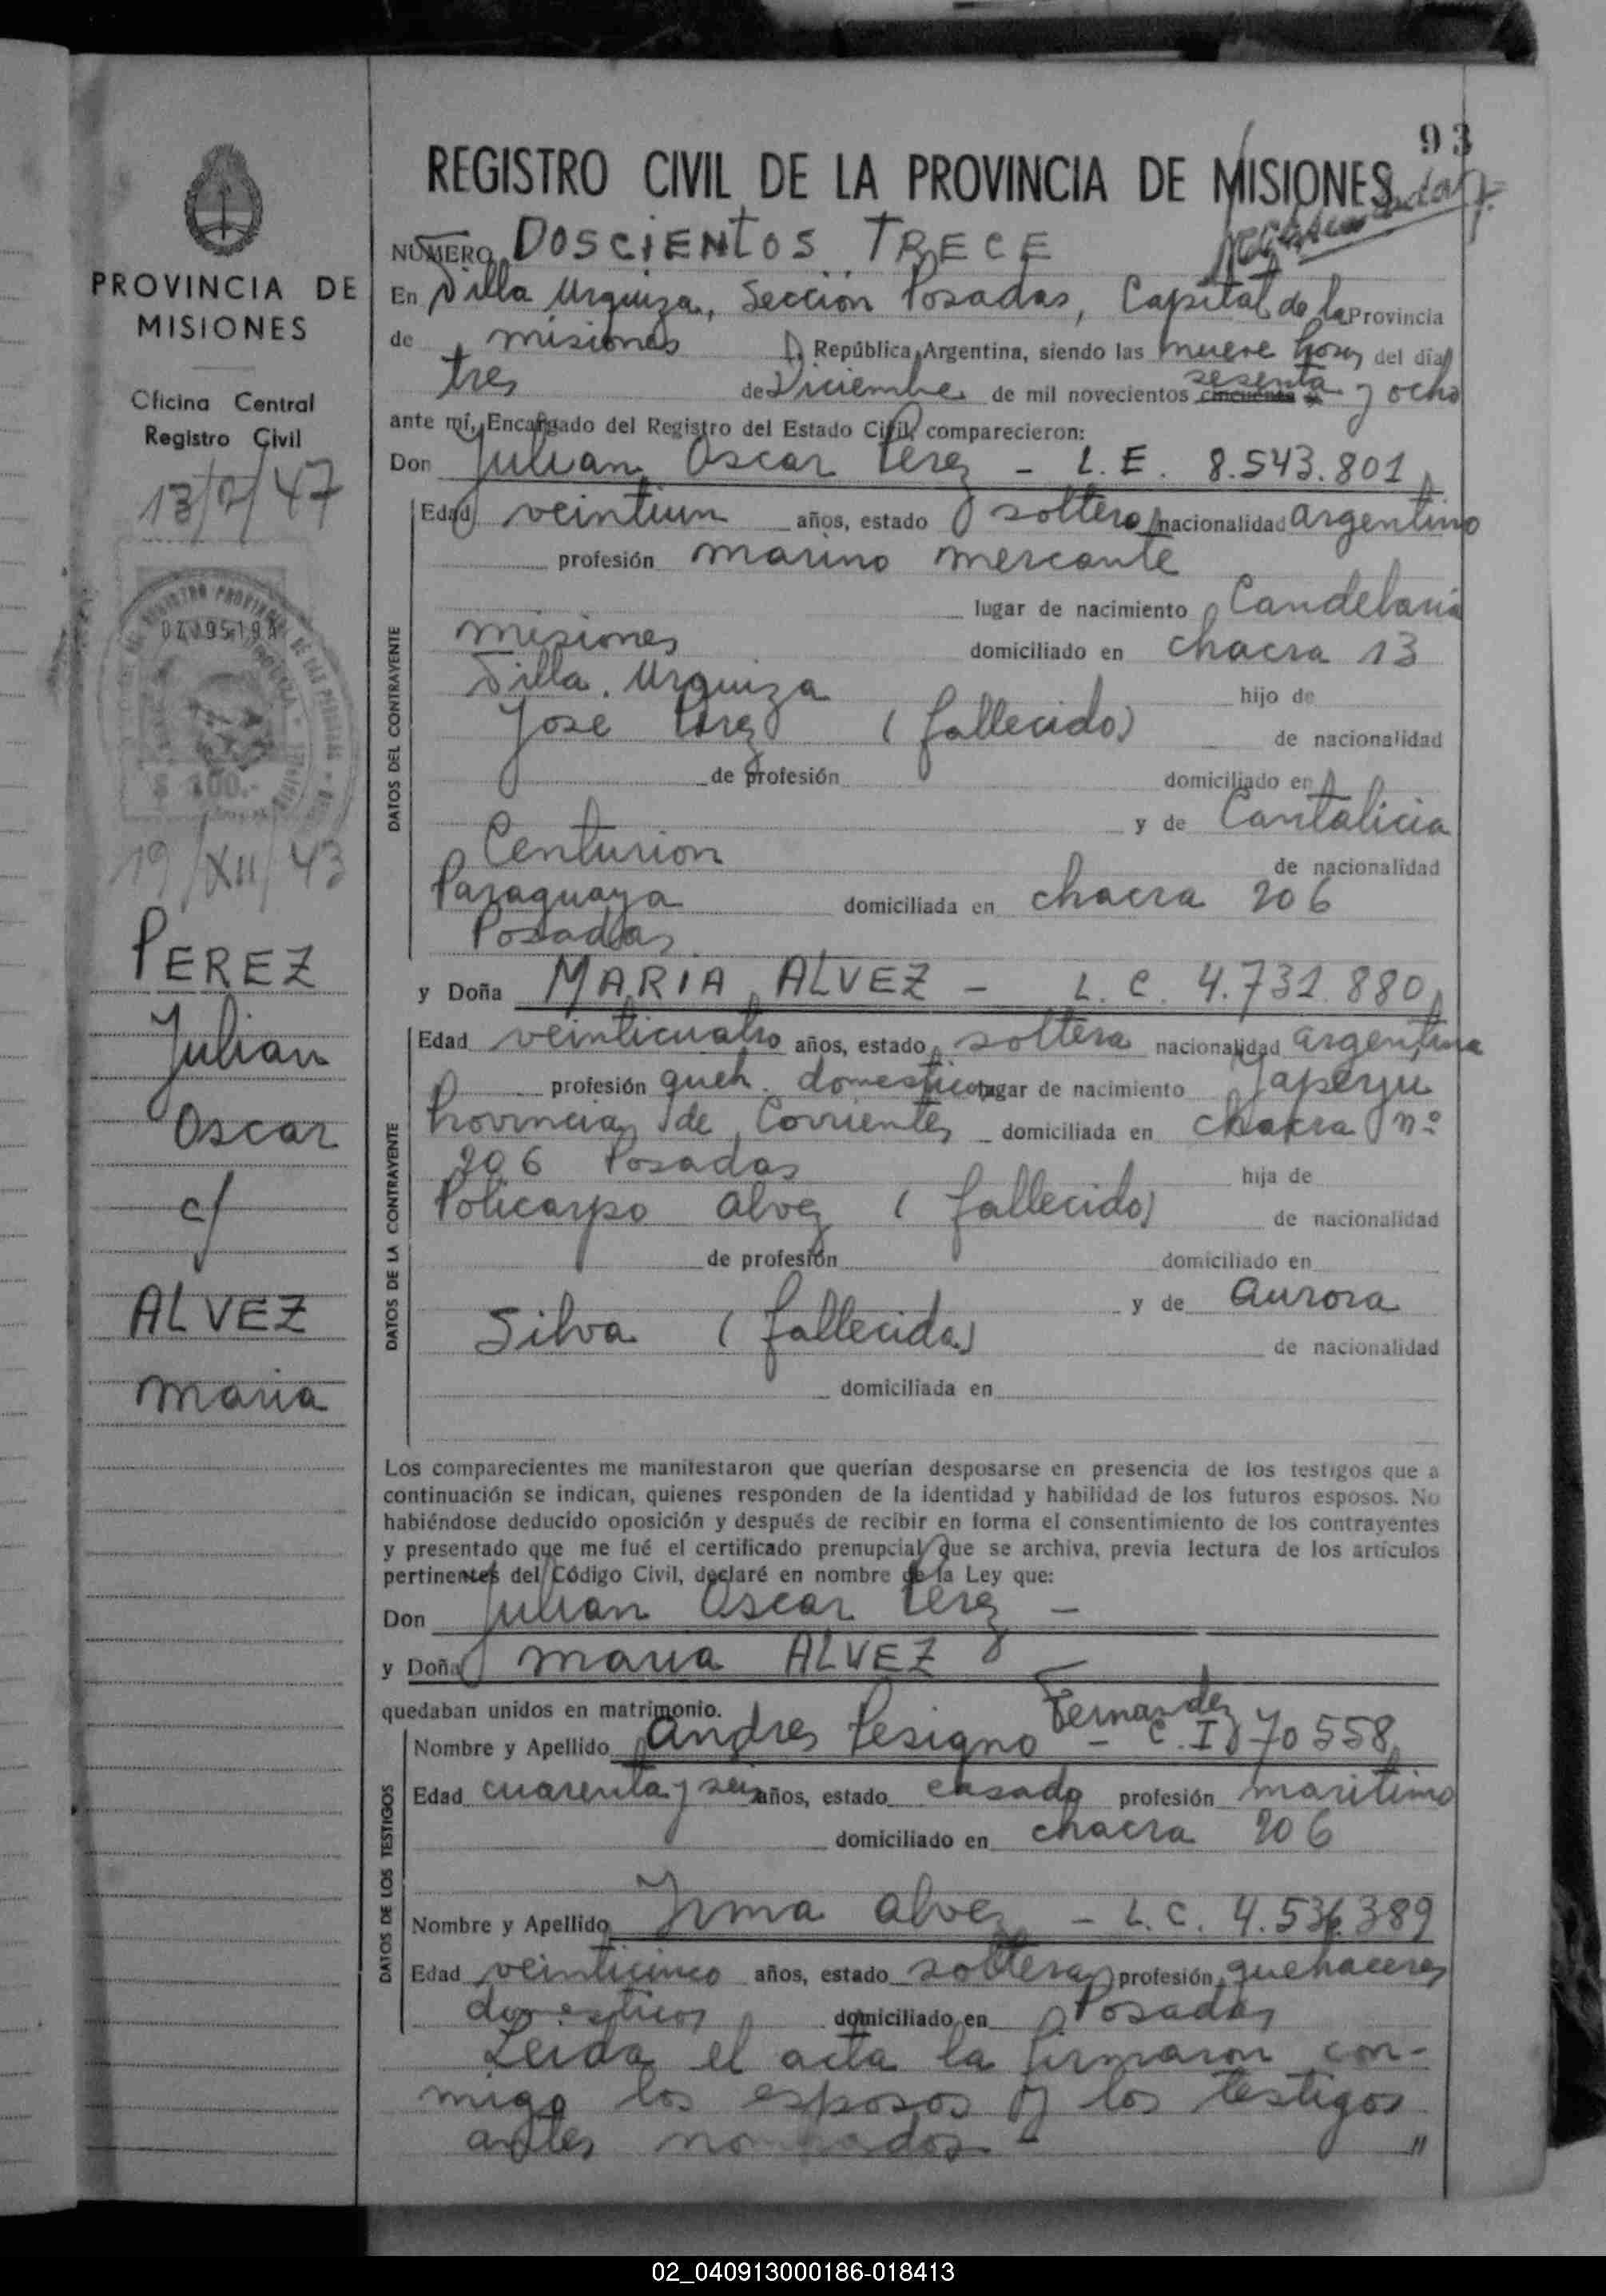 93
REGISTRO CIVIL DE LA PROVINCIA DE MISIONES
NÚMERO DOSCIENTOS TRECE
En Villa Urquiza, Sección Posadas, Capital de la Provincia
de misiones República Argentina, siendo las nueve horas del día
tres de Diciembre de mil novecientos cincuenta sesenta y ocho
ante mí, Encargado del Registro del Estado Civil, comparecieron:
Don Julian Oscar Perez - L.E. 8.543.801
DATOS DEL CONTRAYENTE
Edad veintiun años, estado soltero nacionalidad argentino
profesión marino mercante
lugar de nacimiento Candelaria
misiones domiciliado en chacra 13
Villa Urquiza hijo de
Jose Perez (fallecido) de nacionalidad
de profesión domiciliado en
y de Cantalicia
Centurion de nacionalidad
Paraguaya domiciliada en chacra 206
Posadas
y Doña MARIA ALVEZ - L.C. 4.731.880
DATOS DE LA CONTRAYENTE
Edad veinticuatro años, estado soltera nacionalidad argentina
profesión queh. domesticos lugar de nacimiento Yapeyu
Provincia de Corrientes domiciliada en chacra nº
206 Posadas hija de
Policarpo Alvez (fallecido) de nacionalidad
de profesión domiciliado en
y de Aurora
Silva (fallecida) de nacionalidad
domiciliada en
Los comparecientes me manifestaron que querían desposarse en presencia de los testigos que a
continuación se indican, quienes responden de la identidad y habilidad de los futuros esposos. No
habiéndose deducido oposición y después de recibir en forma el consentimiento de los contrayentes
y presentado que me fué el certificado prenupcial que se archiva, previa lectura de los artículos
pertinentes del Código Civil, declaré en nombre de la Ley que:
Don Julian Oscar Perez -
y Doña Maria ALVEZ
quedaban unidos en matrimonio.
DATOS DE LOS TESTIGOS
Fernandez
Nombre y Apellido Andres Pesigno - C.I. 70558
Edad cuarenta y seis años, estado casado profesión maritimo
domiciliado en chacra 206
Nombre y Apellido Irma Alvez - L.C. 4.536.389
Edad veinticinco años, estado soltera profesión quehaceres
domesticos domiciliado en Posadas
Leida el acta la firmaron con-
migo los esposos y los testigos
antes nombrados - "
PROVINCIA DE
MISIONES
Oficina Central
Registro Civil
13/7/47
$ 100.-
19/XII/43
PEREZ
Julian
Oscar
c/
ALVEZ
Maria
02_040913000186-018413